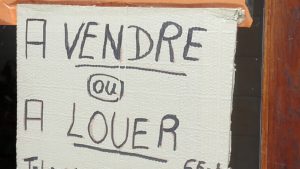 A VENDRE
ou
A LOUER